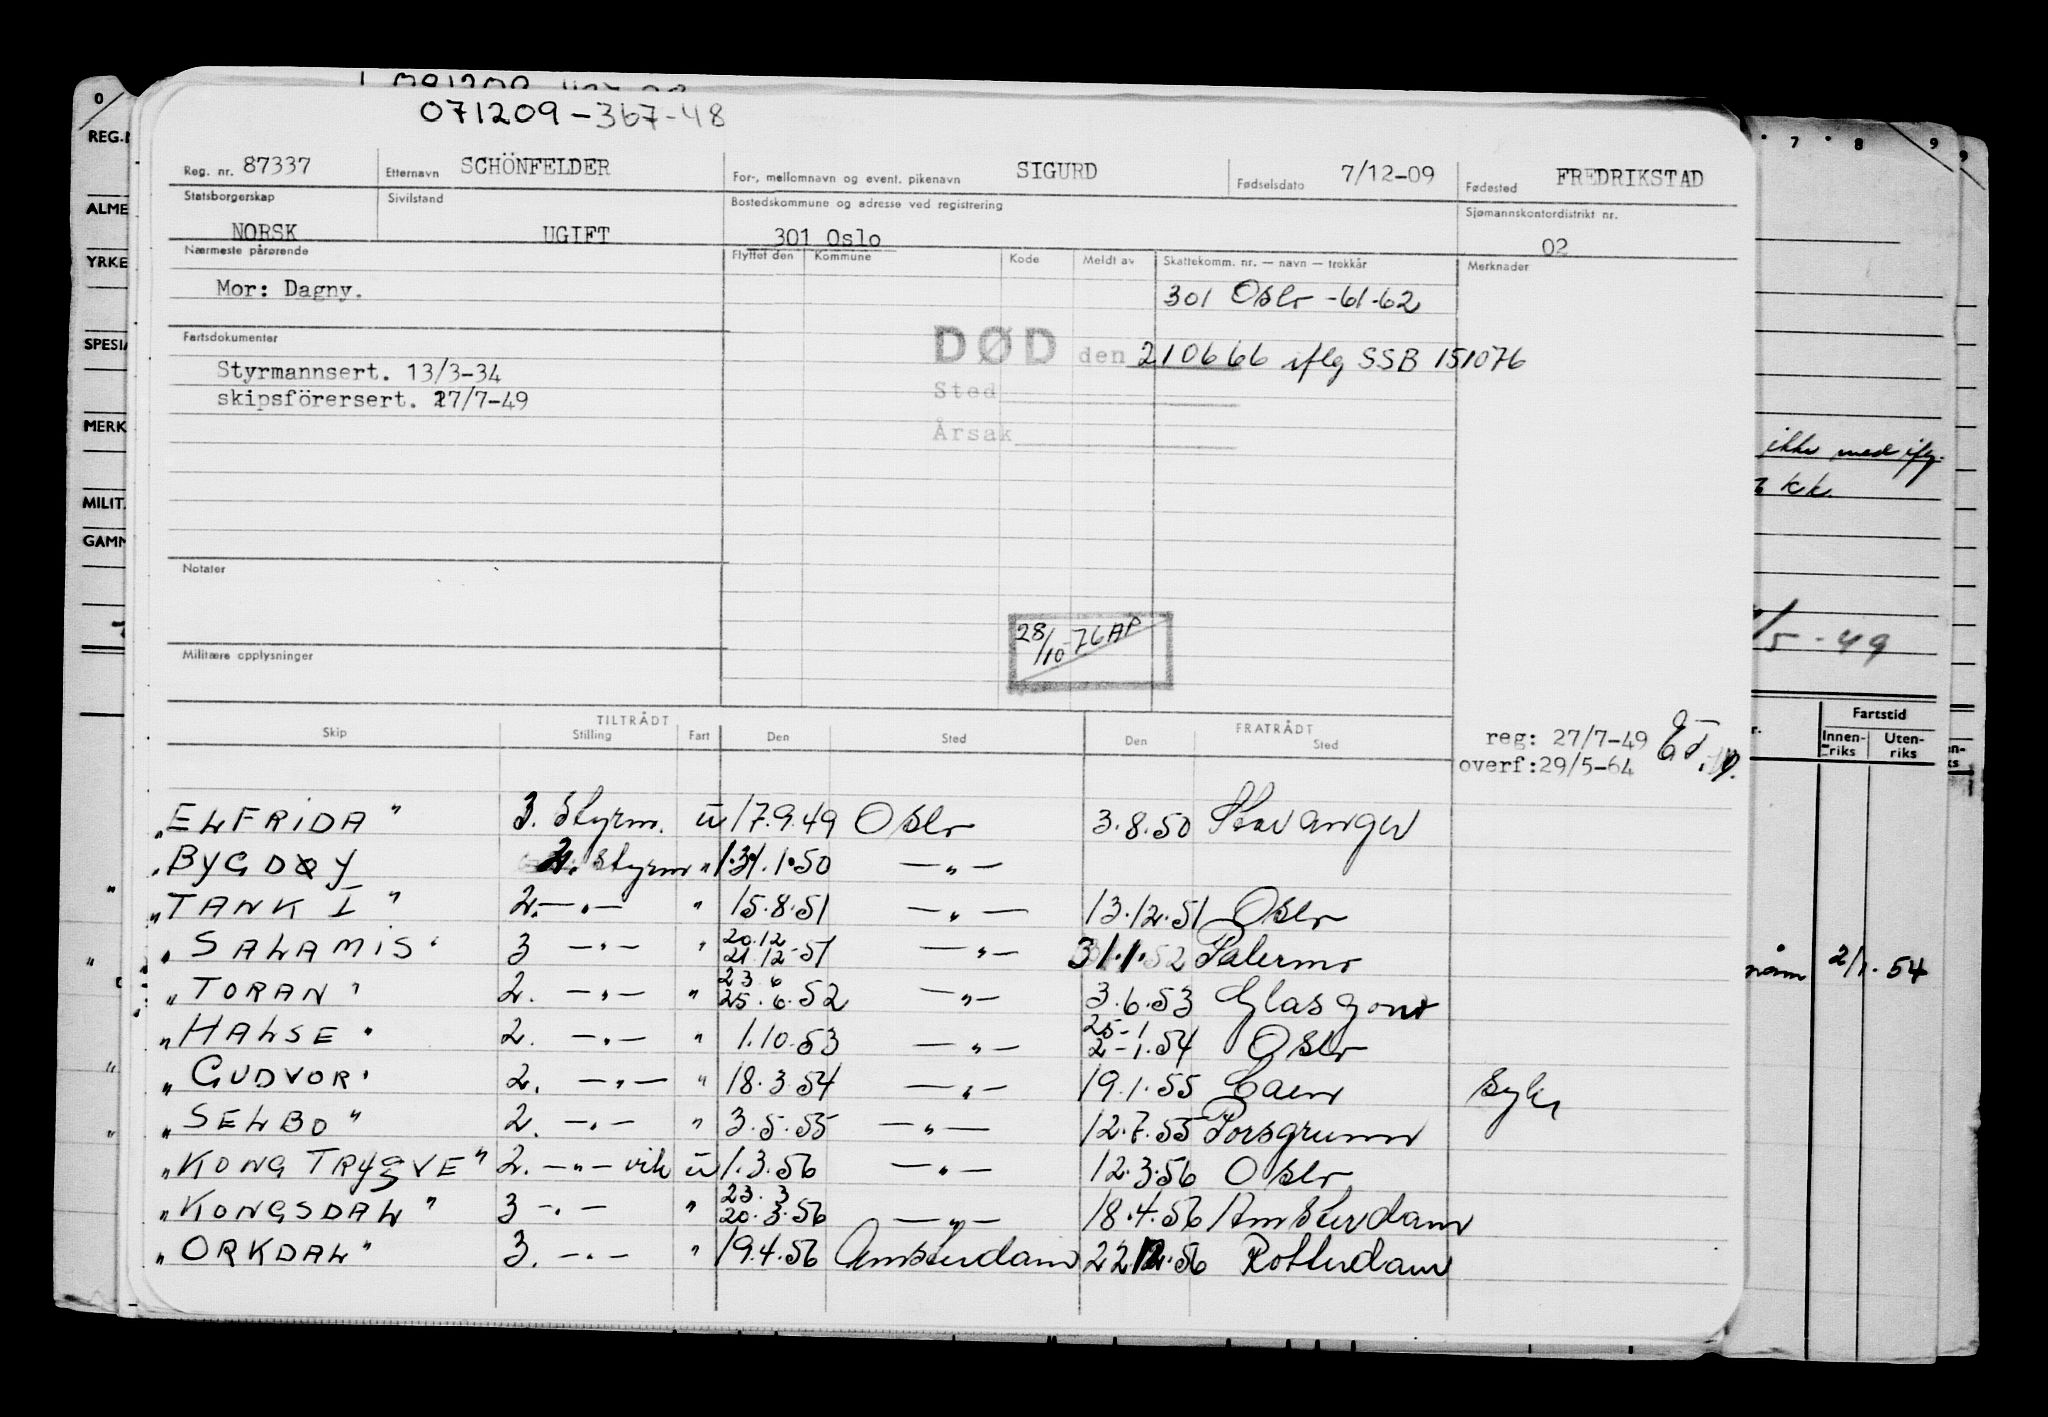 071209-367-48
Reg. nr. 87337 Etternavn SCHÖNFELDER For-, mellomnavn og event. pikenavn SIGURD Fødselsdato 7/12-09 Fødested FREDRIKSTAD
Statsborgerskap Sivilstand Bostedskommune og adresse ved registrering Sjømannskontordistrikt nr.
NORSK UGIFT 301 Oslo 02
Nærmeste pårørende Flyttet den Kommune Kode Meldt av Skattekomm. nr. — navn — trekkår Merknader
Mor: Dagny. 301 Oslo -61-62
Fartsdokumenter DØD den 210666 iflg SSB 151076
Styrmannsert. 13/3-34 Sted
skipsförersert. 27/7-49
Årsak
Notater
28/10-76 AP
Militære opplysninger
TILTRÅDT FRATRÅDT
Skip Stilling Fart Den Sted Den Sted
reg: 27/7-49
overf:29/5-64
„ELFRIDA" 3. Styrm. u 17.9.49 Oslo 3.8.50 Stavanger
„BYGDØY Styrm " 1.50 —„—
„TANK I" 2.—„— " 15.8.51 —„— 13.12.51 Oslo
„SALAMIS" 3 —„— " 20.12 21.12-51 —„— 31.1.52 Palermo
„TORAN" 2. —„— " 23.6 25.6.52 —„— 3.6.53 Glasgow
„HALSE" 2. —„— " 1.10.53 —„— 25-1 2-1.54 Oslo
„GUDVOR" 2. —„— " 18.3.54 —„— 19.1.55 Caen syk
„SELBO" 2. —„— " 3.5.55 —„— 12.7.55 Porsgrunn
„KONG TRYGVE" 2. —„— vik u 1.3.56 —„— 12.3.56 Oslo
„KONGSDAL" 3 —„— " 23.3 20.3.56 —„— 18.4.56 Amsterdam
„ORKDAL" 3. —„— " 19.4.56 Amsterdam 22.12.56 Rotterdam
0
REG.
ALME
YRKE
SPESIA
MERK
MILIT
GAMM
7 8 9 9
ikke med iflg.
kk.
/5-49
Fartstid
Innenriks Utenriks
2/1.54